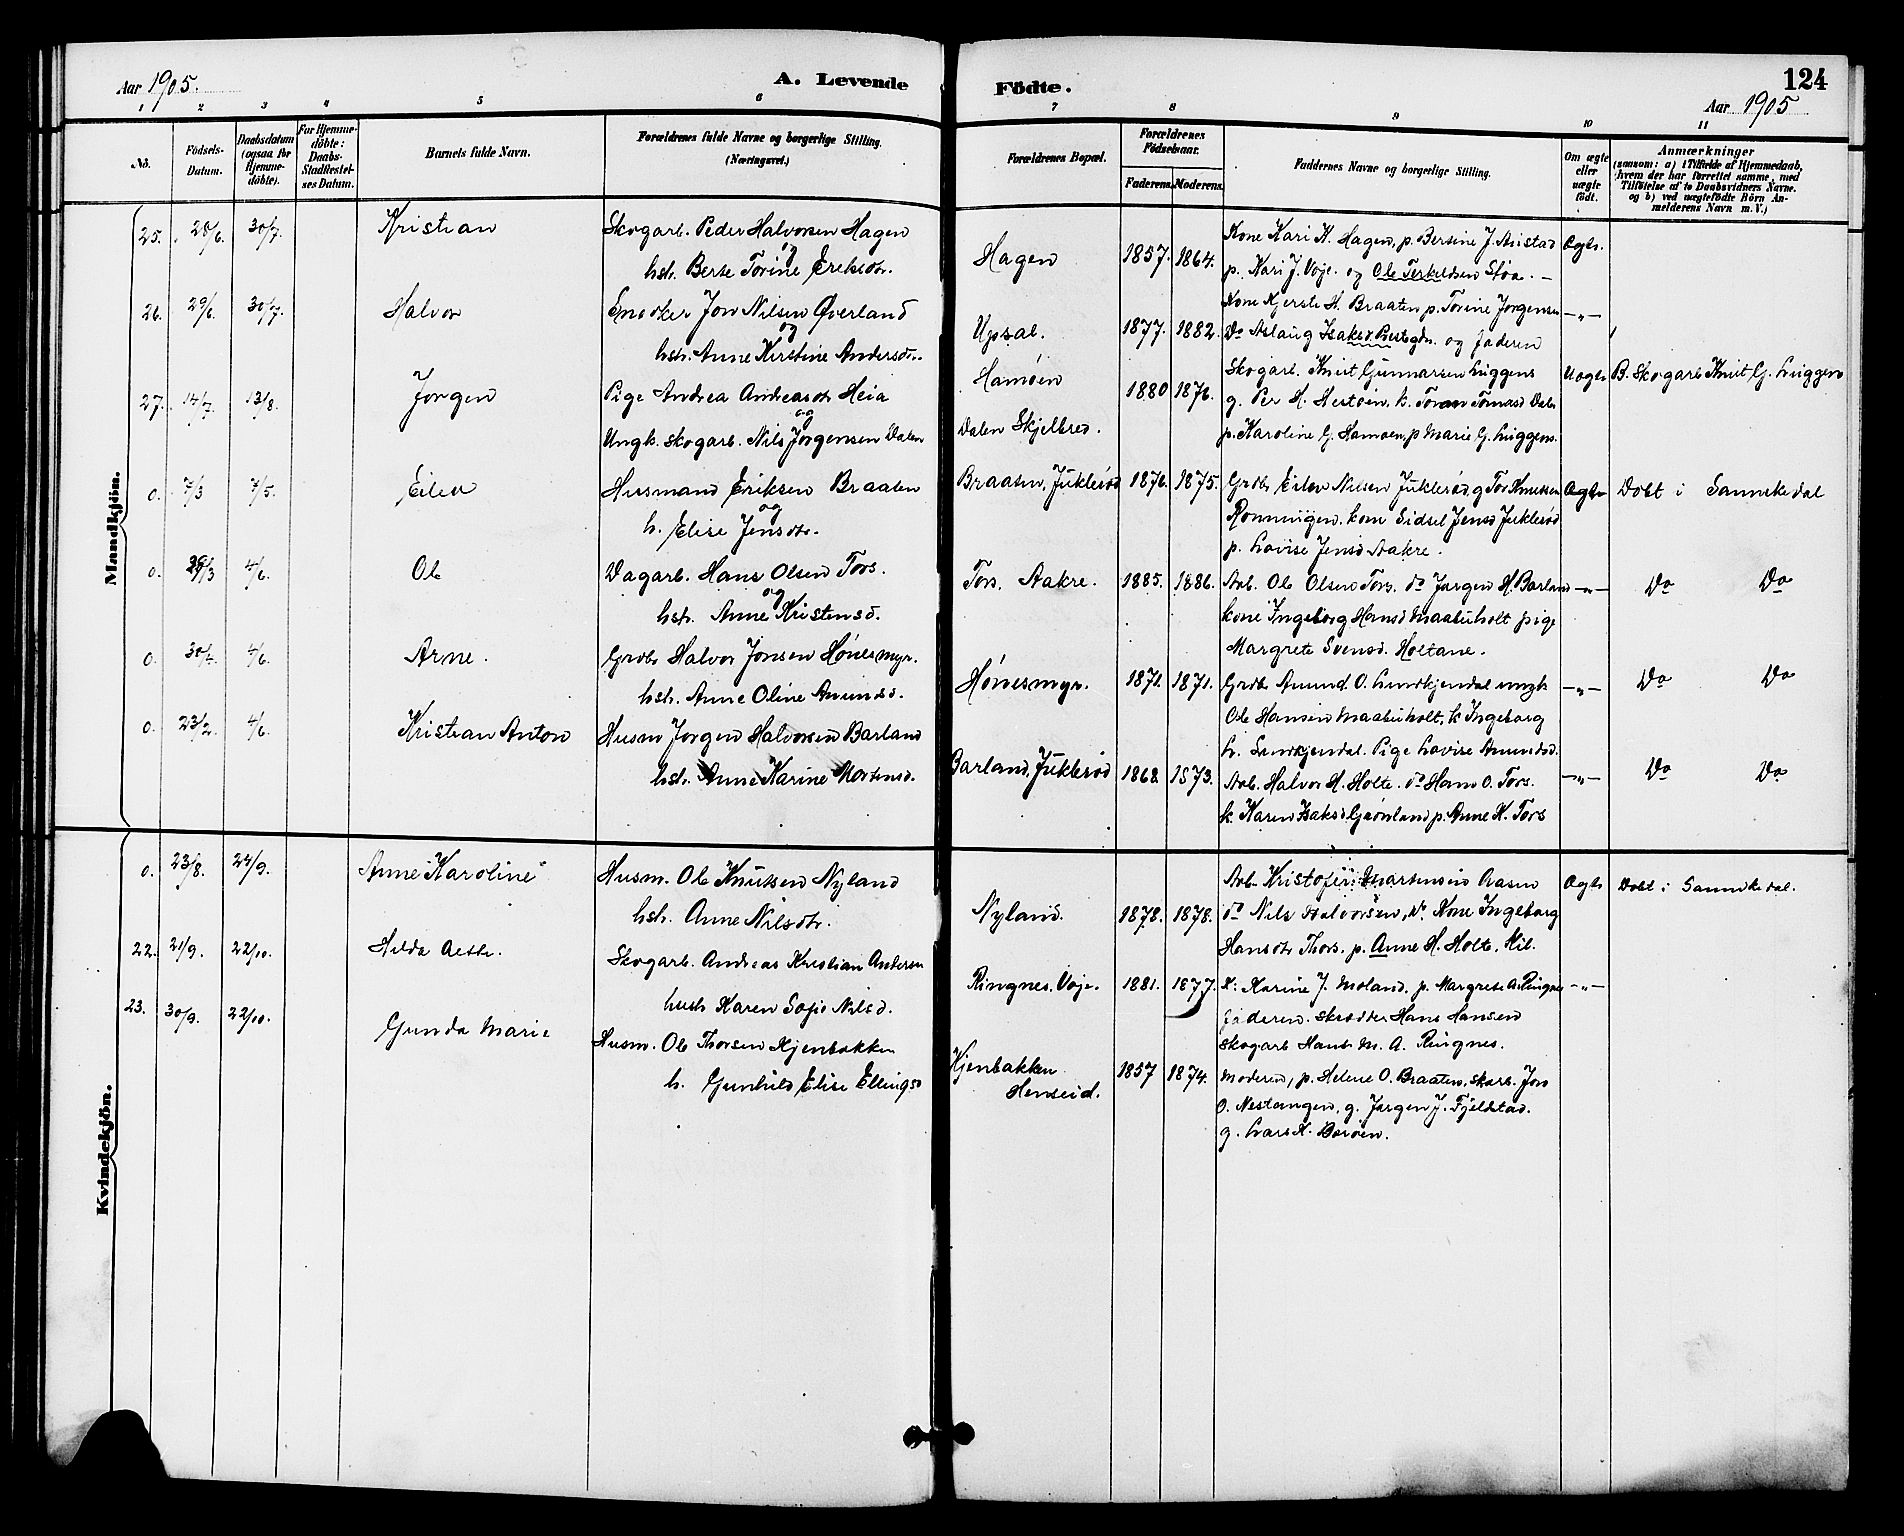 Aar 1905.
A. Levende
Födte.
124
Aar 1905
1 2 3 4 5 6 7 8 9 10 11
No.
Födsels-Datum.
Daabsdatum (ogsaa for Hjemme-döbte).
For Hjemme-döbte: Daabs-Stadfestel-ses Datum.
Barnets fulde Navn.
Forældrenes fulde Navne og borgerlige Stilling. (Næringsvei.)
Forældrenes Bopæl.
Forældrenes Födselsaar.
Faderens. Moderens.
Faddernes Navne og borgerlige Stilling.
Om ægte eller uægte födt.
Anmærkninger
(saasom: a) i Tilfælde af Hjemmedaab,
hvem der har forrettet samme, med
Tilföielse af to Daabsvidners Navne.
og b) ved uægtefödte Börn An-
melderens Navn m. V.)
Mandkjön.
25. 28/6. 30/7. Kristian
Skogarb. Peder Halvorsen Hagen
og
hstr. Berte Torine Eriksdtr.
Hagen 1857. 1864.
Kone Kari K. Hagen, p. Bersine J. Aristad
p. Kari J. Voje. og Ole Terkeldsen Støa. —
Ægte.
26. 29/6. 30/7. Halvor
Snedker Jon Nilsen Øverland
og
hstr. Anne Kirstine Andersdtr.
Upsal. 1877. 1882.
Kone Kjerste H. Braaten p. Torine Jorgensen
Do Aslaug Isaksd. Prestegdn. og Faderen
—"—
27. 14/7. 13/8. Jorgen
Pige Andrea Andreasdtr Heia
og
Ungk. skogarb. Nils Jorgensen Dalen
Hamøen
Dalen Skjelbred.
1880 1876.
Skogarb. Knut Gunnarsen Luggens
g. Per H. Hestøen, k. Toran Tomasd Dalen
p. Karoline G. Hamoen, p Marie G. Luggens.
Uægte
B. Skogarb Knut G. Luggens
0. 7/3 7/5. Eilev
Husmand Eriksen Braaten
og
h. Elise Jensdtr.
Braaten, Juklerød 1876. 1875.
Grdbr Eilev Nilsen Juklerød, g Tor Knutsen
Rønningen. kone Sidsel Jensd Juklerød
p. Lovise Jensd Aakre.
Ægte
Døbt i Sannikedal
0. 29/3 4/6. Ole
Dagarb. Hans Olsen Tors.
og
hstr. Anne Kristensd.
Tors. Aakre. 1885. 1886.
Arb. Ole Olsen Tors. do Jorgen H. Barland
kone Ingeborg Hansd Maabuholt pige
Margrete Svensd. Holtane.
—"—
Do Do
0. 30/4. 4/6. Arne.
Grdbr Halvor Jonsen Hönesmyr.
hstr. Anne Oline Amundsd.
Hönesmyr. 1871. 1871.
Grdbr Amund O. Lundkjendal ungk
Ole Hansen Maabuholt, k Ingeborg
L. Lundkjendal. Pige Lovise Amundsd.
—"—
Do Do
0. 23/2. 4/6. Kristian Anton
Husm Jorgen Halvorsen Barland
hstr. Anne Karine Mortensd.
Barland, Juklerød 1868 1873.
Arb. Halvor H. Holte. do Hans O. Tors.
k. Karen Isaksd Grønland p. Anne K. Tors
—"—
Do Do
Kvindekjön.
0. 23/8. 24/9. Anne Karoline
Husm. Ole Knutsen Nyland
hstr. Anne Nilsdtr.
Nyland. 1878. 1878.
Arb. Kristofer Martensen Aasen
do Nils Halvorsen, do. Kone Ingeborg
Hansdtr Thors. p. Anne H. Holte. Kil.
Ægte
Døbt i Sannikedal.
22. 21/9. 22/10. Hilda
Skogarb. Andreas Kristian Andersen
hustr Karen Sofie Nilsd.
Ringnes. Voje. 1881. 1877.
K: Karine J. Moland. p. Margrete A. Ringnes
Faderen. skrædder Hans Hansen
skogarb Hans M. A. Ringnes.
—"—
23. 30/9. 22/10. Gunda Marie
Husm. Ole Thorsen Kjenbakken
h. Gunhild Elise Ellingsd
Kjenbakken
Henseid.
1857 1874.
Moderen, p. Helene O. Braaten, skarb. Jon
O. Nestangen, g. Jorgen J. Fjeldstad.
g. Lars K. Borøen.